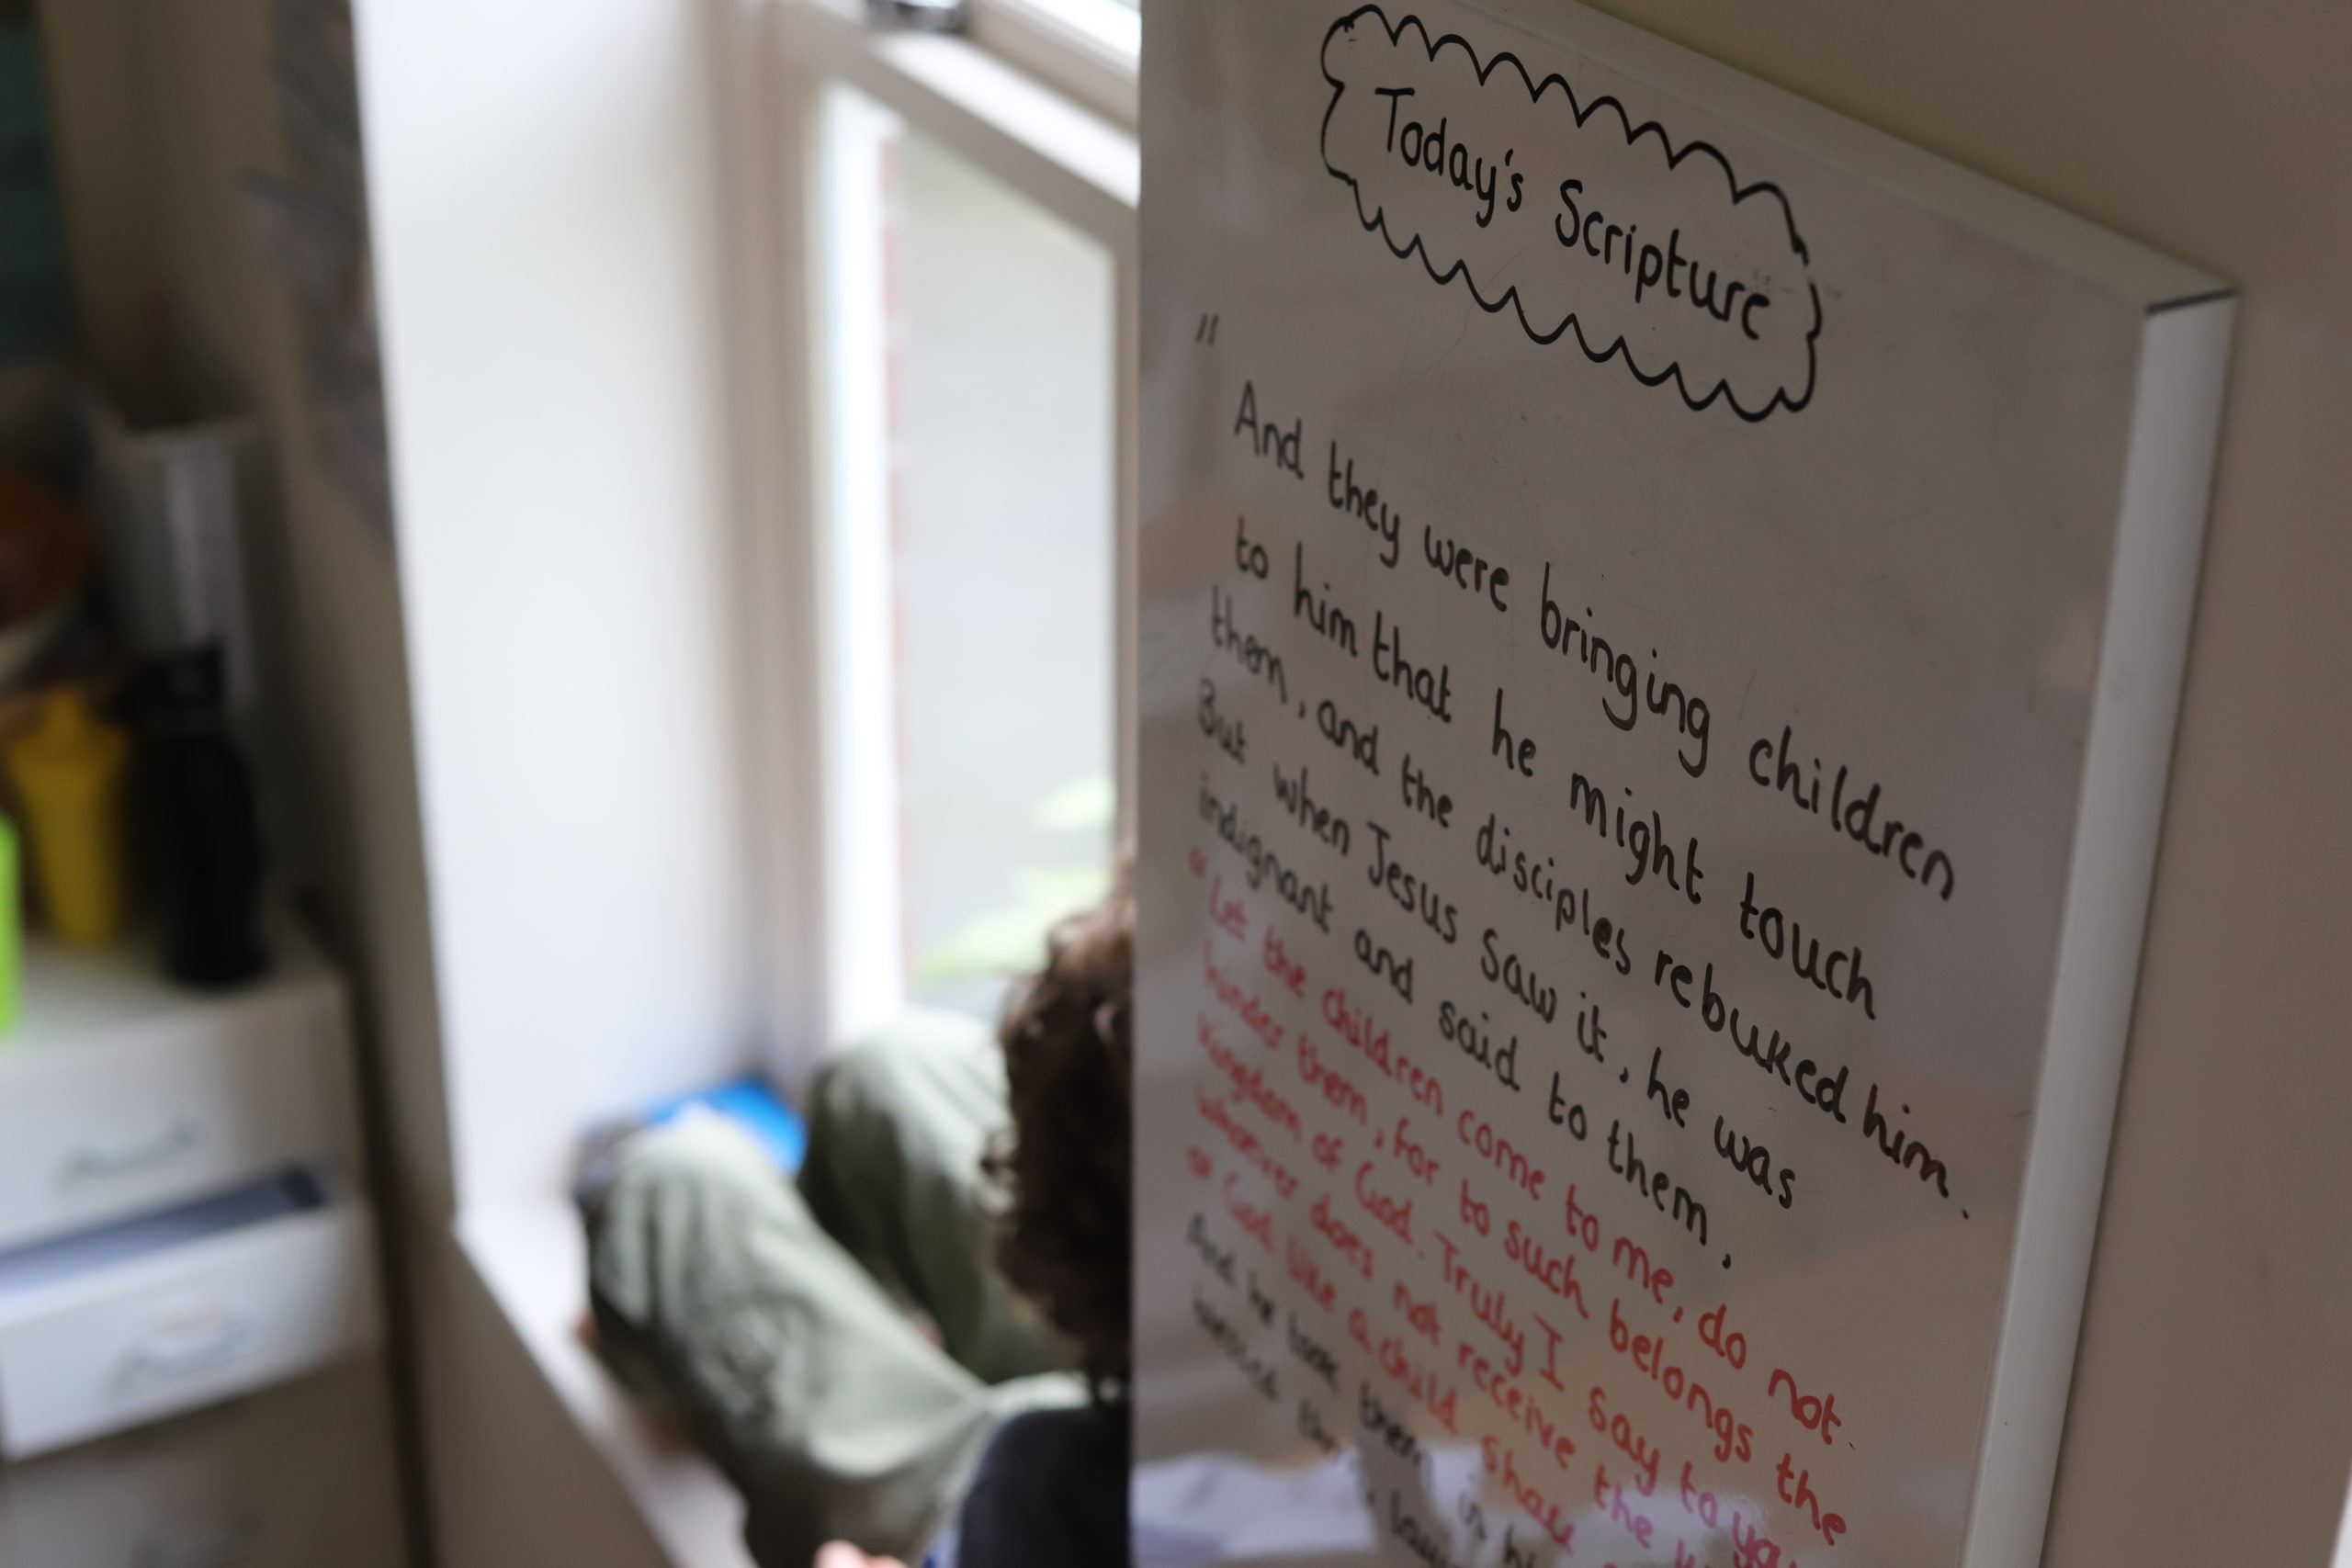 Today's Scripture
"
And they were bringing children
to him that he might touch
them, and the disciples rebuked him.
But when Jesus saw it, he was
indignant and said to them,
"Let the children come to me, do not
hinder them, for to such belongs the
kingdom of God. Truly I say to you
whoever does not receive the
of God like a child shall
And he took them
blessed